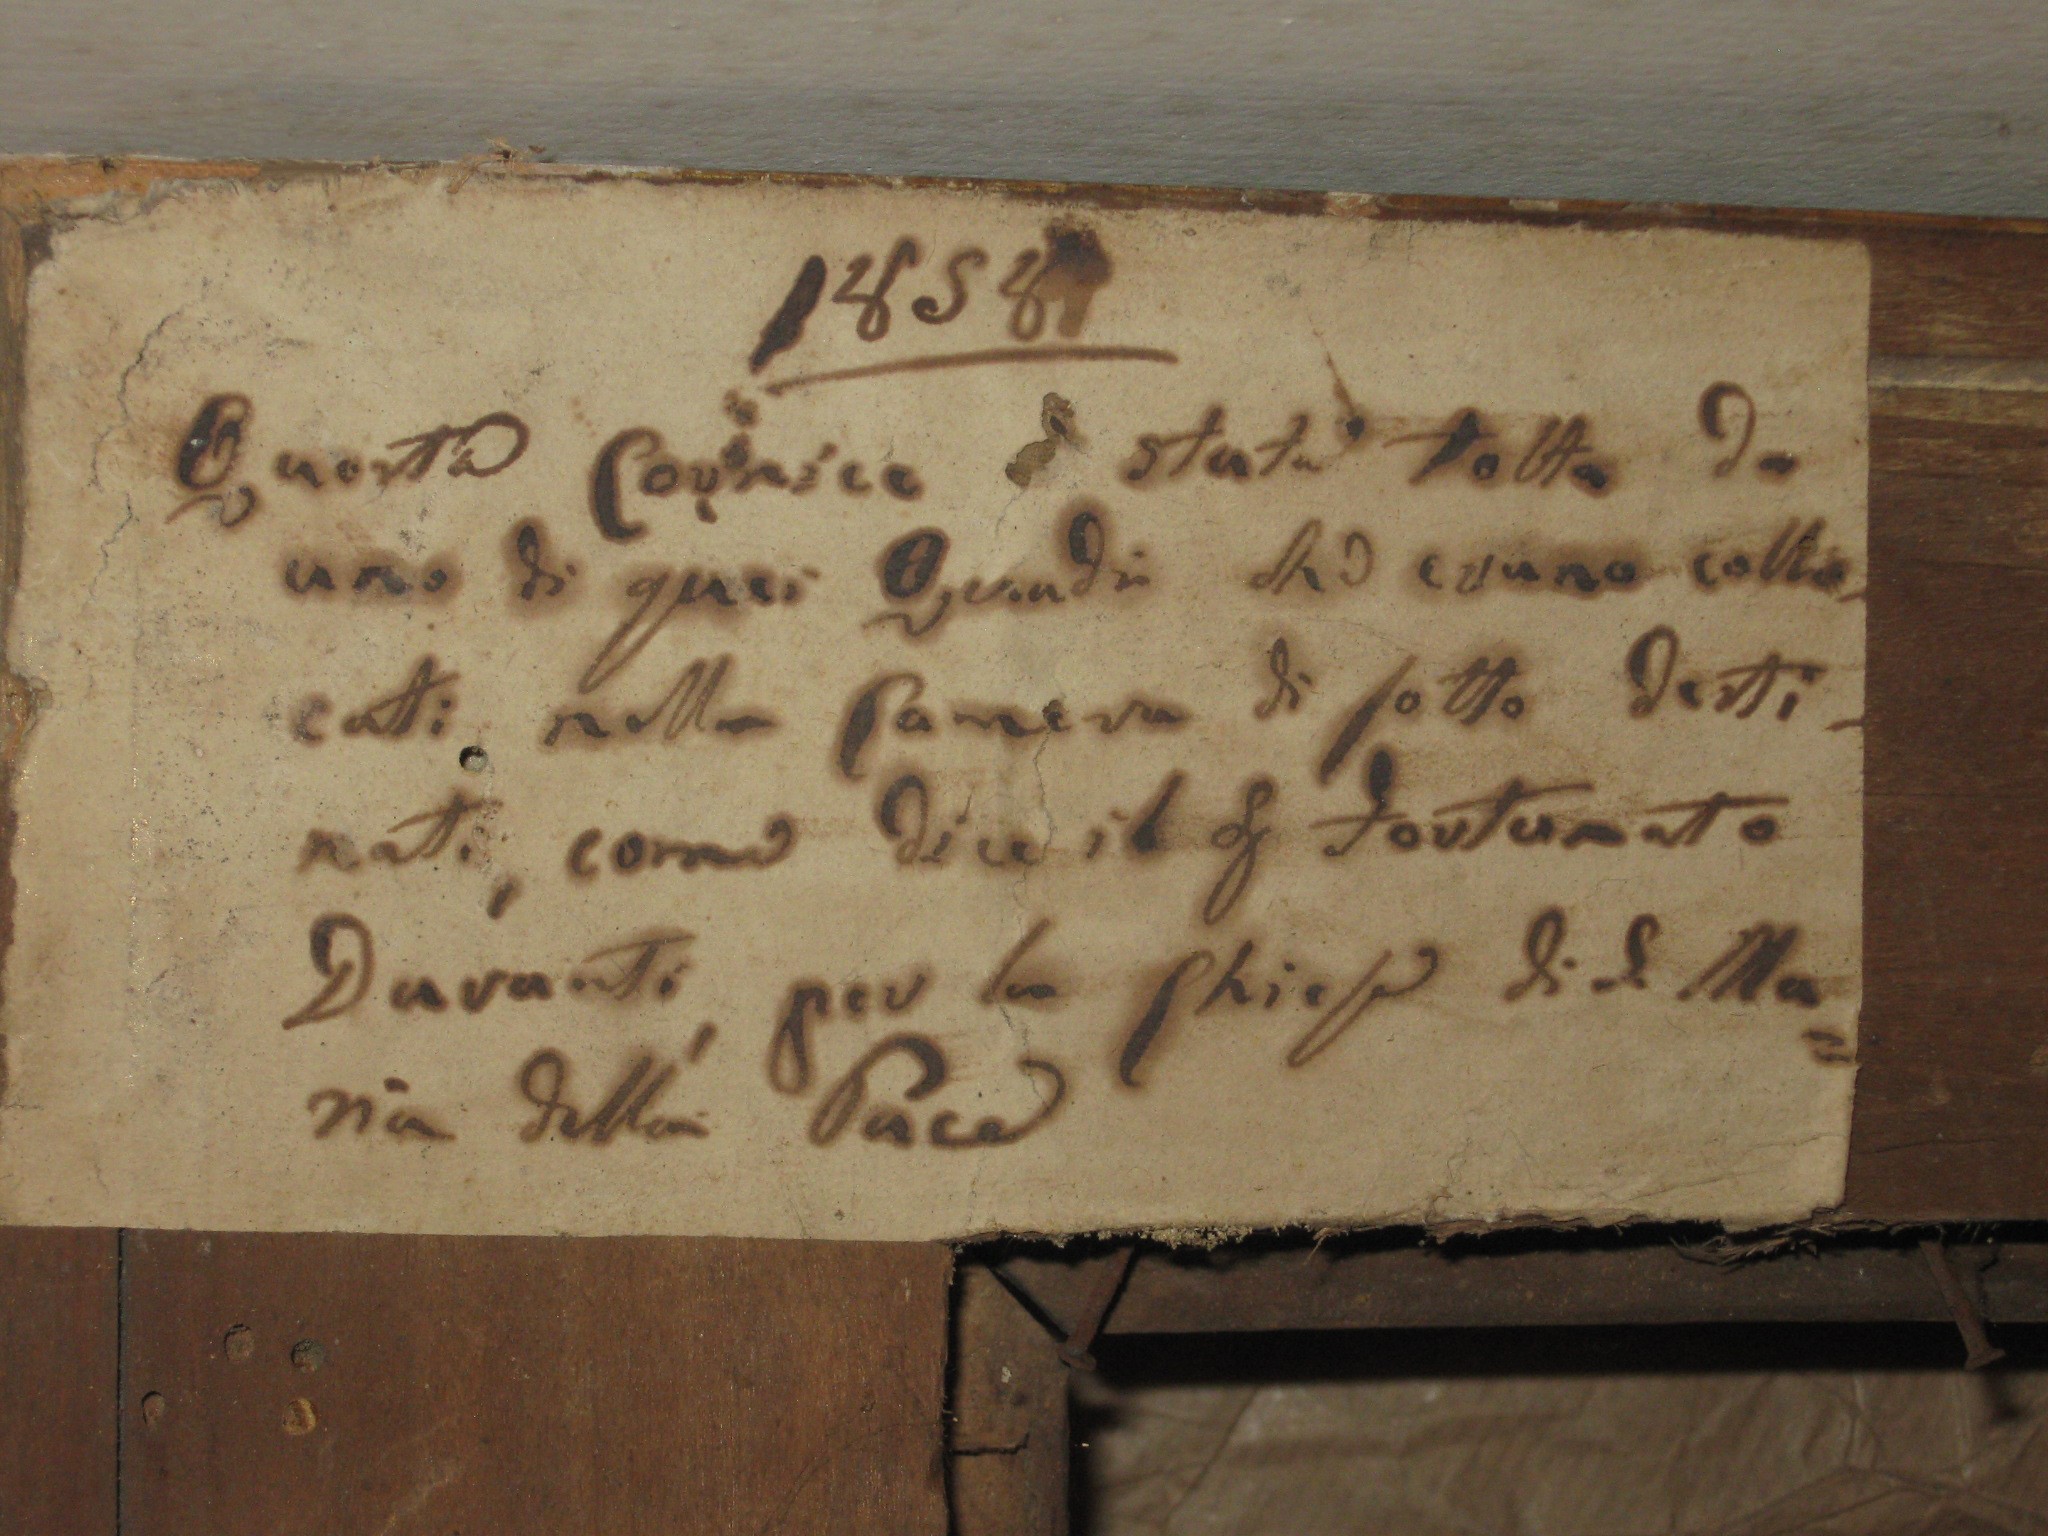 1858
Questa Cornice è stata tolta da
uno di quei Quadri che erano collo-
cati nella Camera di sotto desti-
nati, come dice il Sig Fortunato
Duranti, per la Chiesa di S. Ma=
ria della Pace